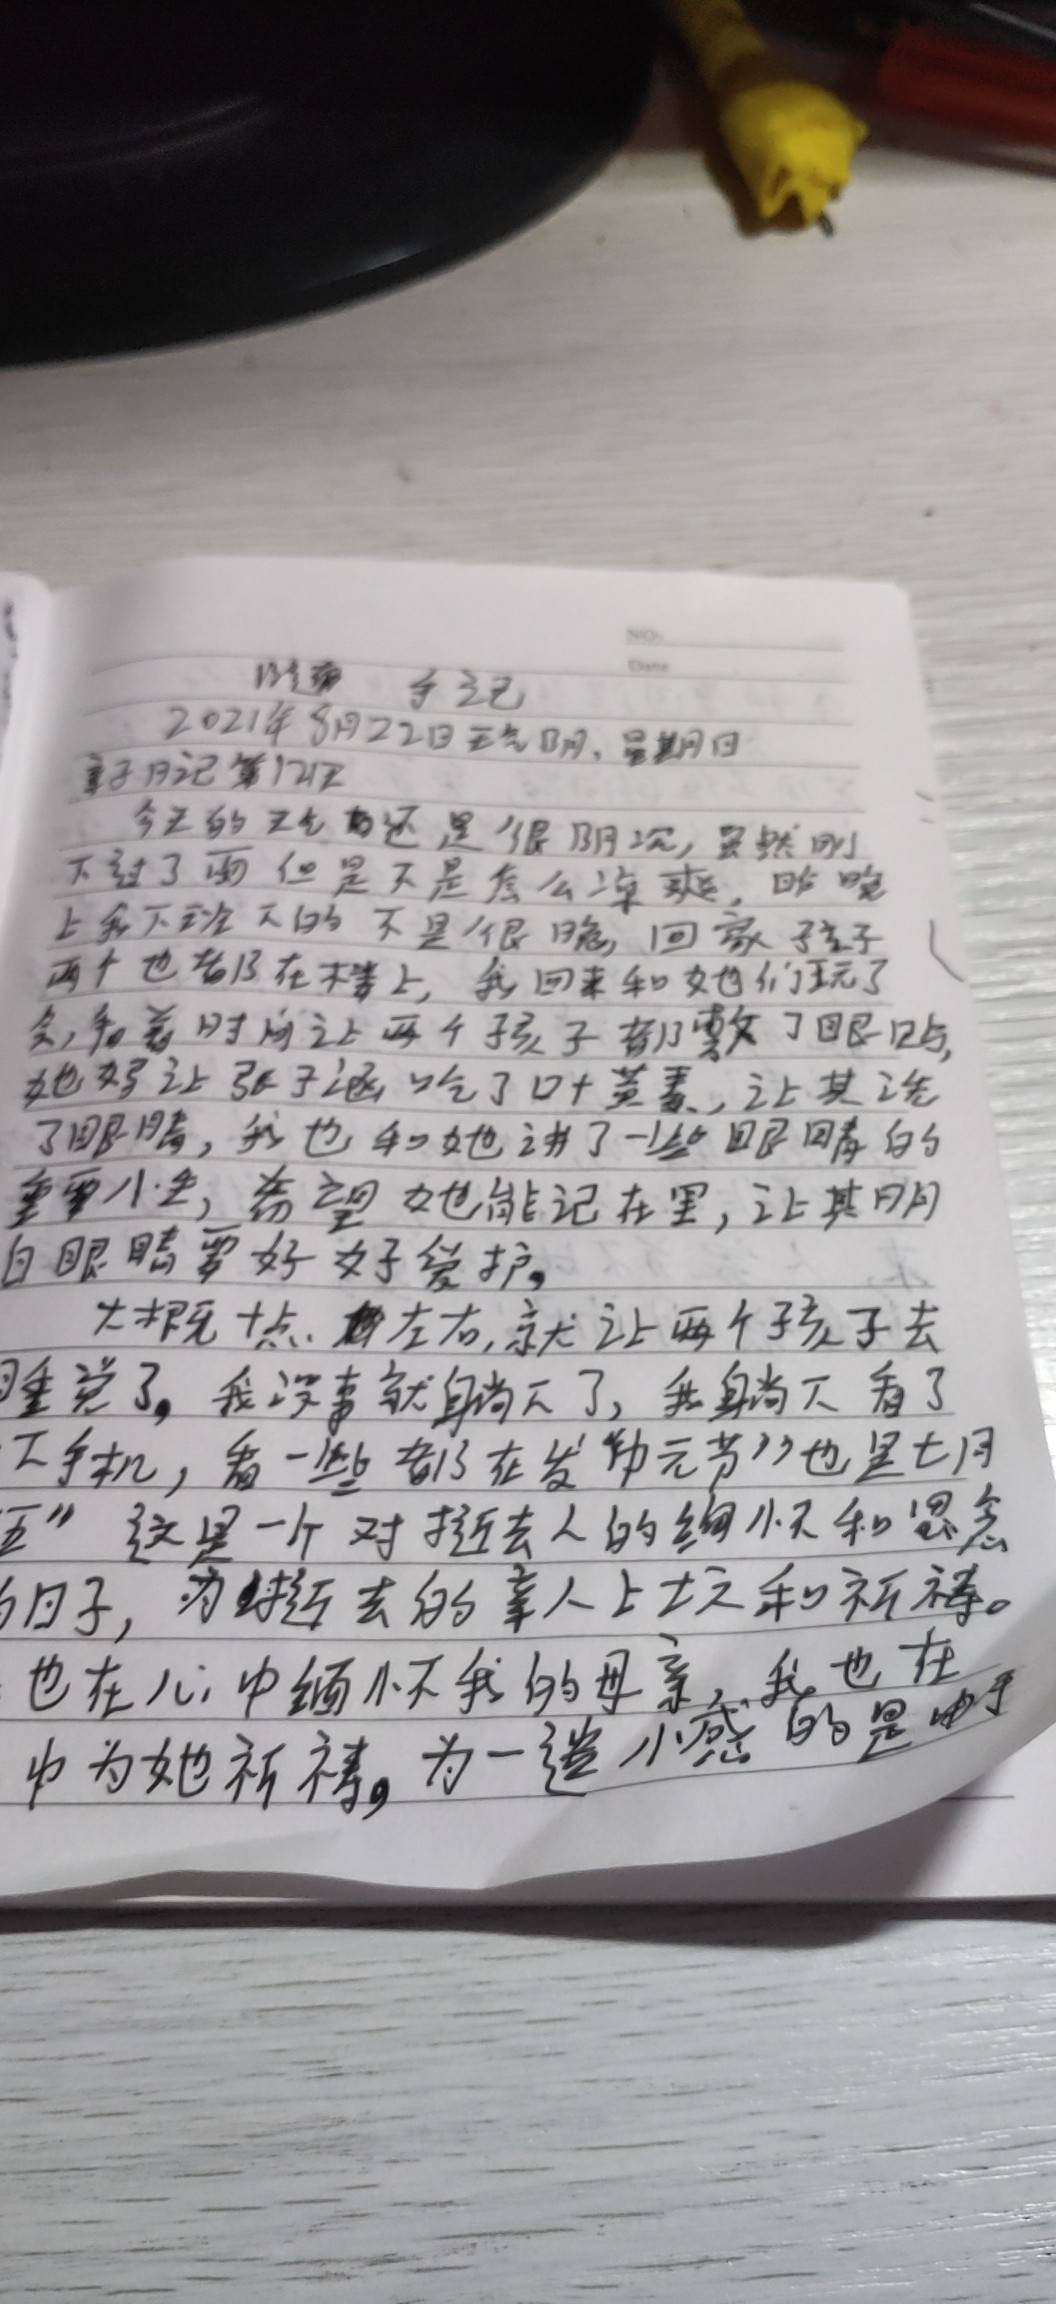 NO.
Date
随 手记
2021年8月22日天气阴、星期日
亲子日记第121天
今天的天气还是很阴沉，虽然刚
下过了雨但是不是怎么凉爽，昨晚
上我下班下的不是很晚，回家孩子
两个也都在楼上，我回来和她们玩了
会，看着时间让两个孩子都敷了眼贴，
她妈让张子涵吃了叶黄素，让其洗
了眼睛，我也和她讲了一些眼睛的
重要小生，希望她能记在里，让其明
白眼睛要好好爱护。
大概十点左右，就让两个孩子去
睡觉了。我没事就躺下了，我躺下看了
下手机，看一些都在发“中元节”也是七月
五” 这是一个对逝去人的缅怀和思念
的日子，为逝去的亲人上坟和祈祷。
也在心中缅怀我的母亲，我也在
中为她祈祷。为一遗憾的是